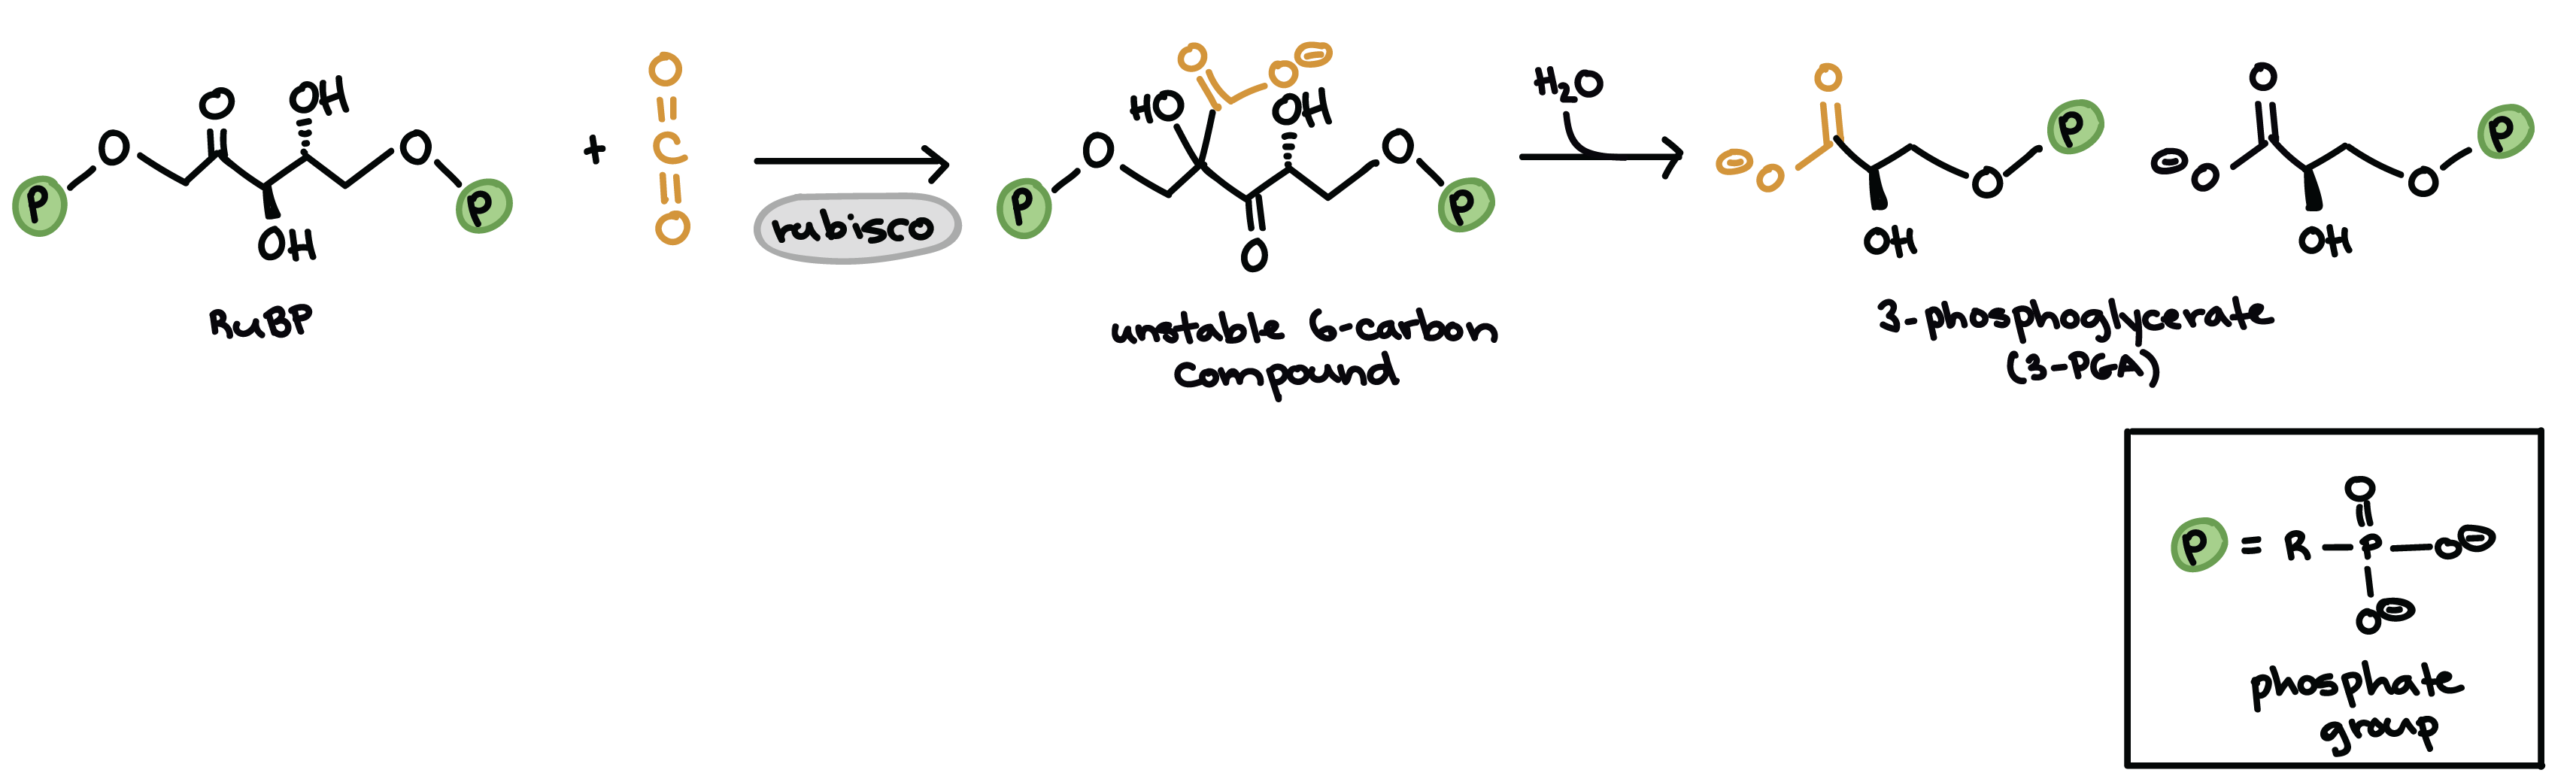 P
O
O
OH
OH
O
P
RuBP
+
O
C
O
rubisco
P
O
HO
O
O ⊖
OH
O
O
P
unstable 6-carbon
compound
H₂O
O
⊖ O
OH
O
P
O
⊖ O
OH
O
P
3-phosphoglycerate
(3-PGA)
O
P = R – P – O ⊖
O ⊖
phosphate
group